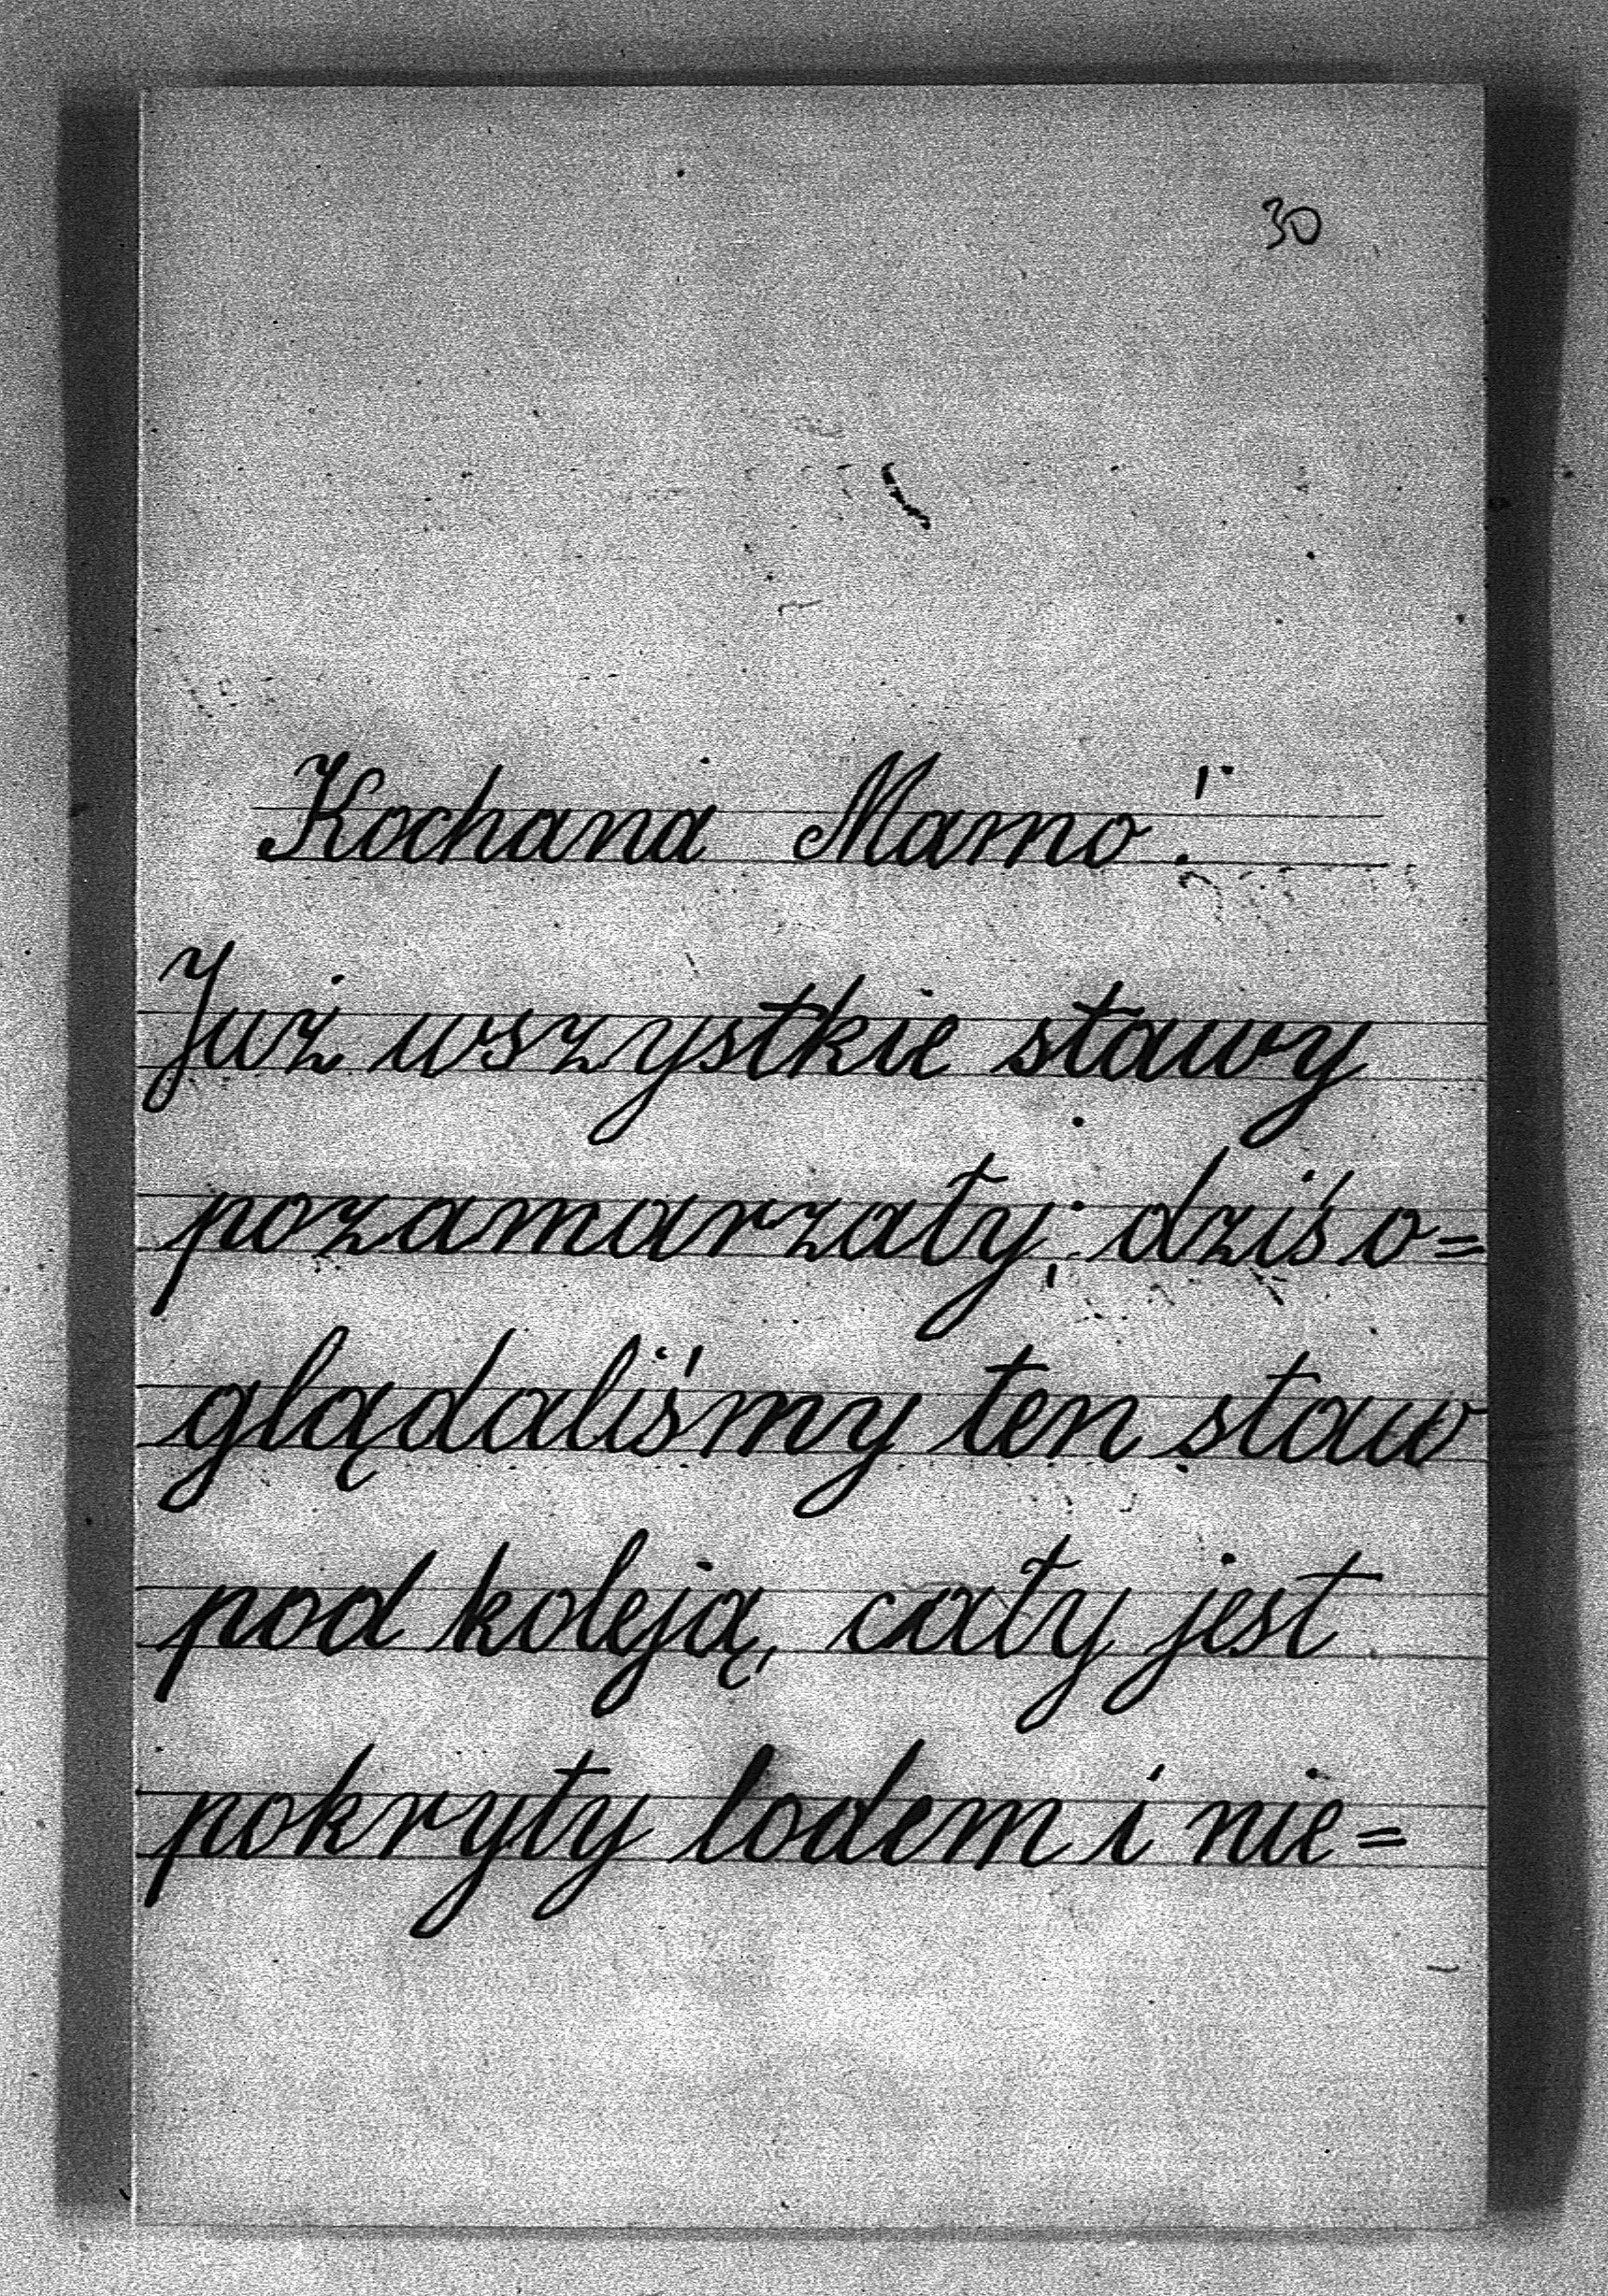 30
Kochana Mamo!
Już wszystkie stawy
pozamarzały; dziś o=
glądaliśmy ten staw
pod koleją, cały jest
pokryty lodem i nie=